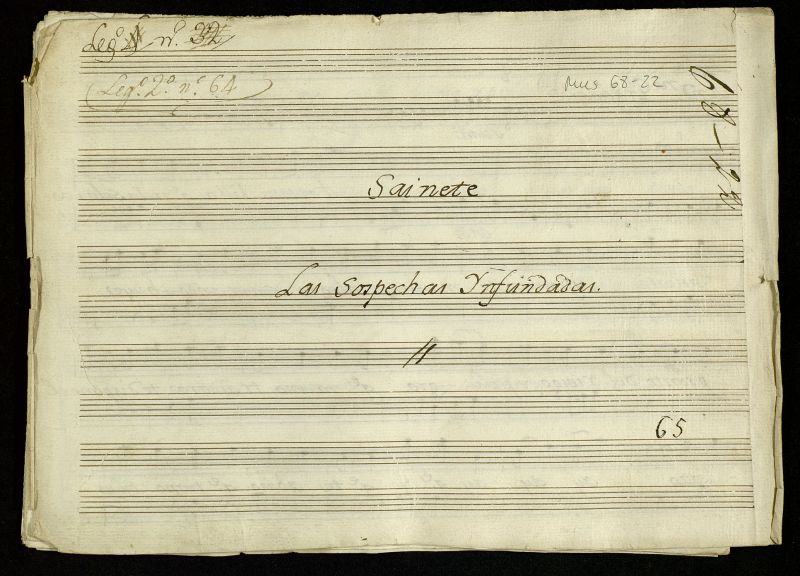 Leg.º nº.
Leg.º 2º. nº. 64
Mus 68-22
Sainete
Las Sospechas Ynfundadas.
65